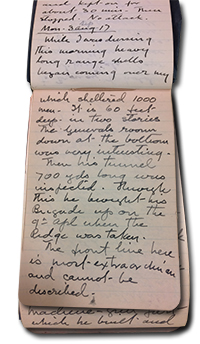 and kept on for
about 30 mins. Then
stopped. No attack.
Mon. 3 Aug 17
While I was dining
this morning heavy
long range shells
began coming over my
which sheltered 1000
men. It is 60 feet
deep in two stories
The Generals rooms
down at the bottom
was very interesting.
Then his tunnel
700 yds long was
inspected. Through
this he brought his
Brigade up on the
9th Apl when the
Ridge was taken.
The front line here
is most extraordinary
and cannot be
described.
machine-gun
which he built and